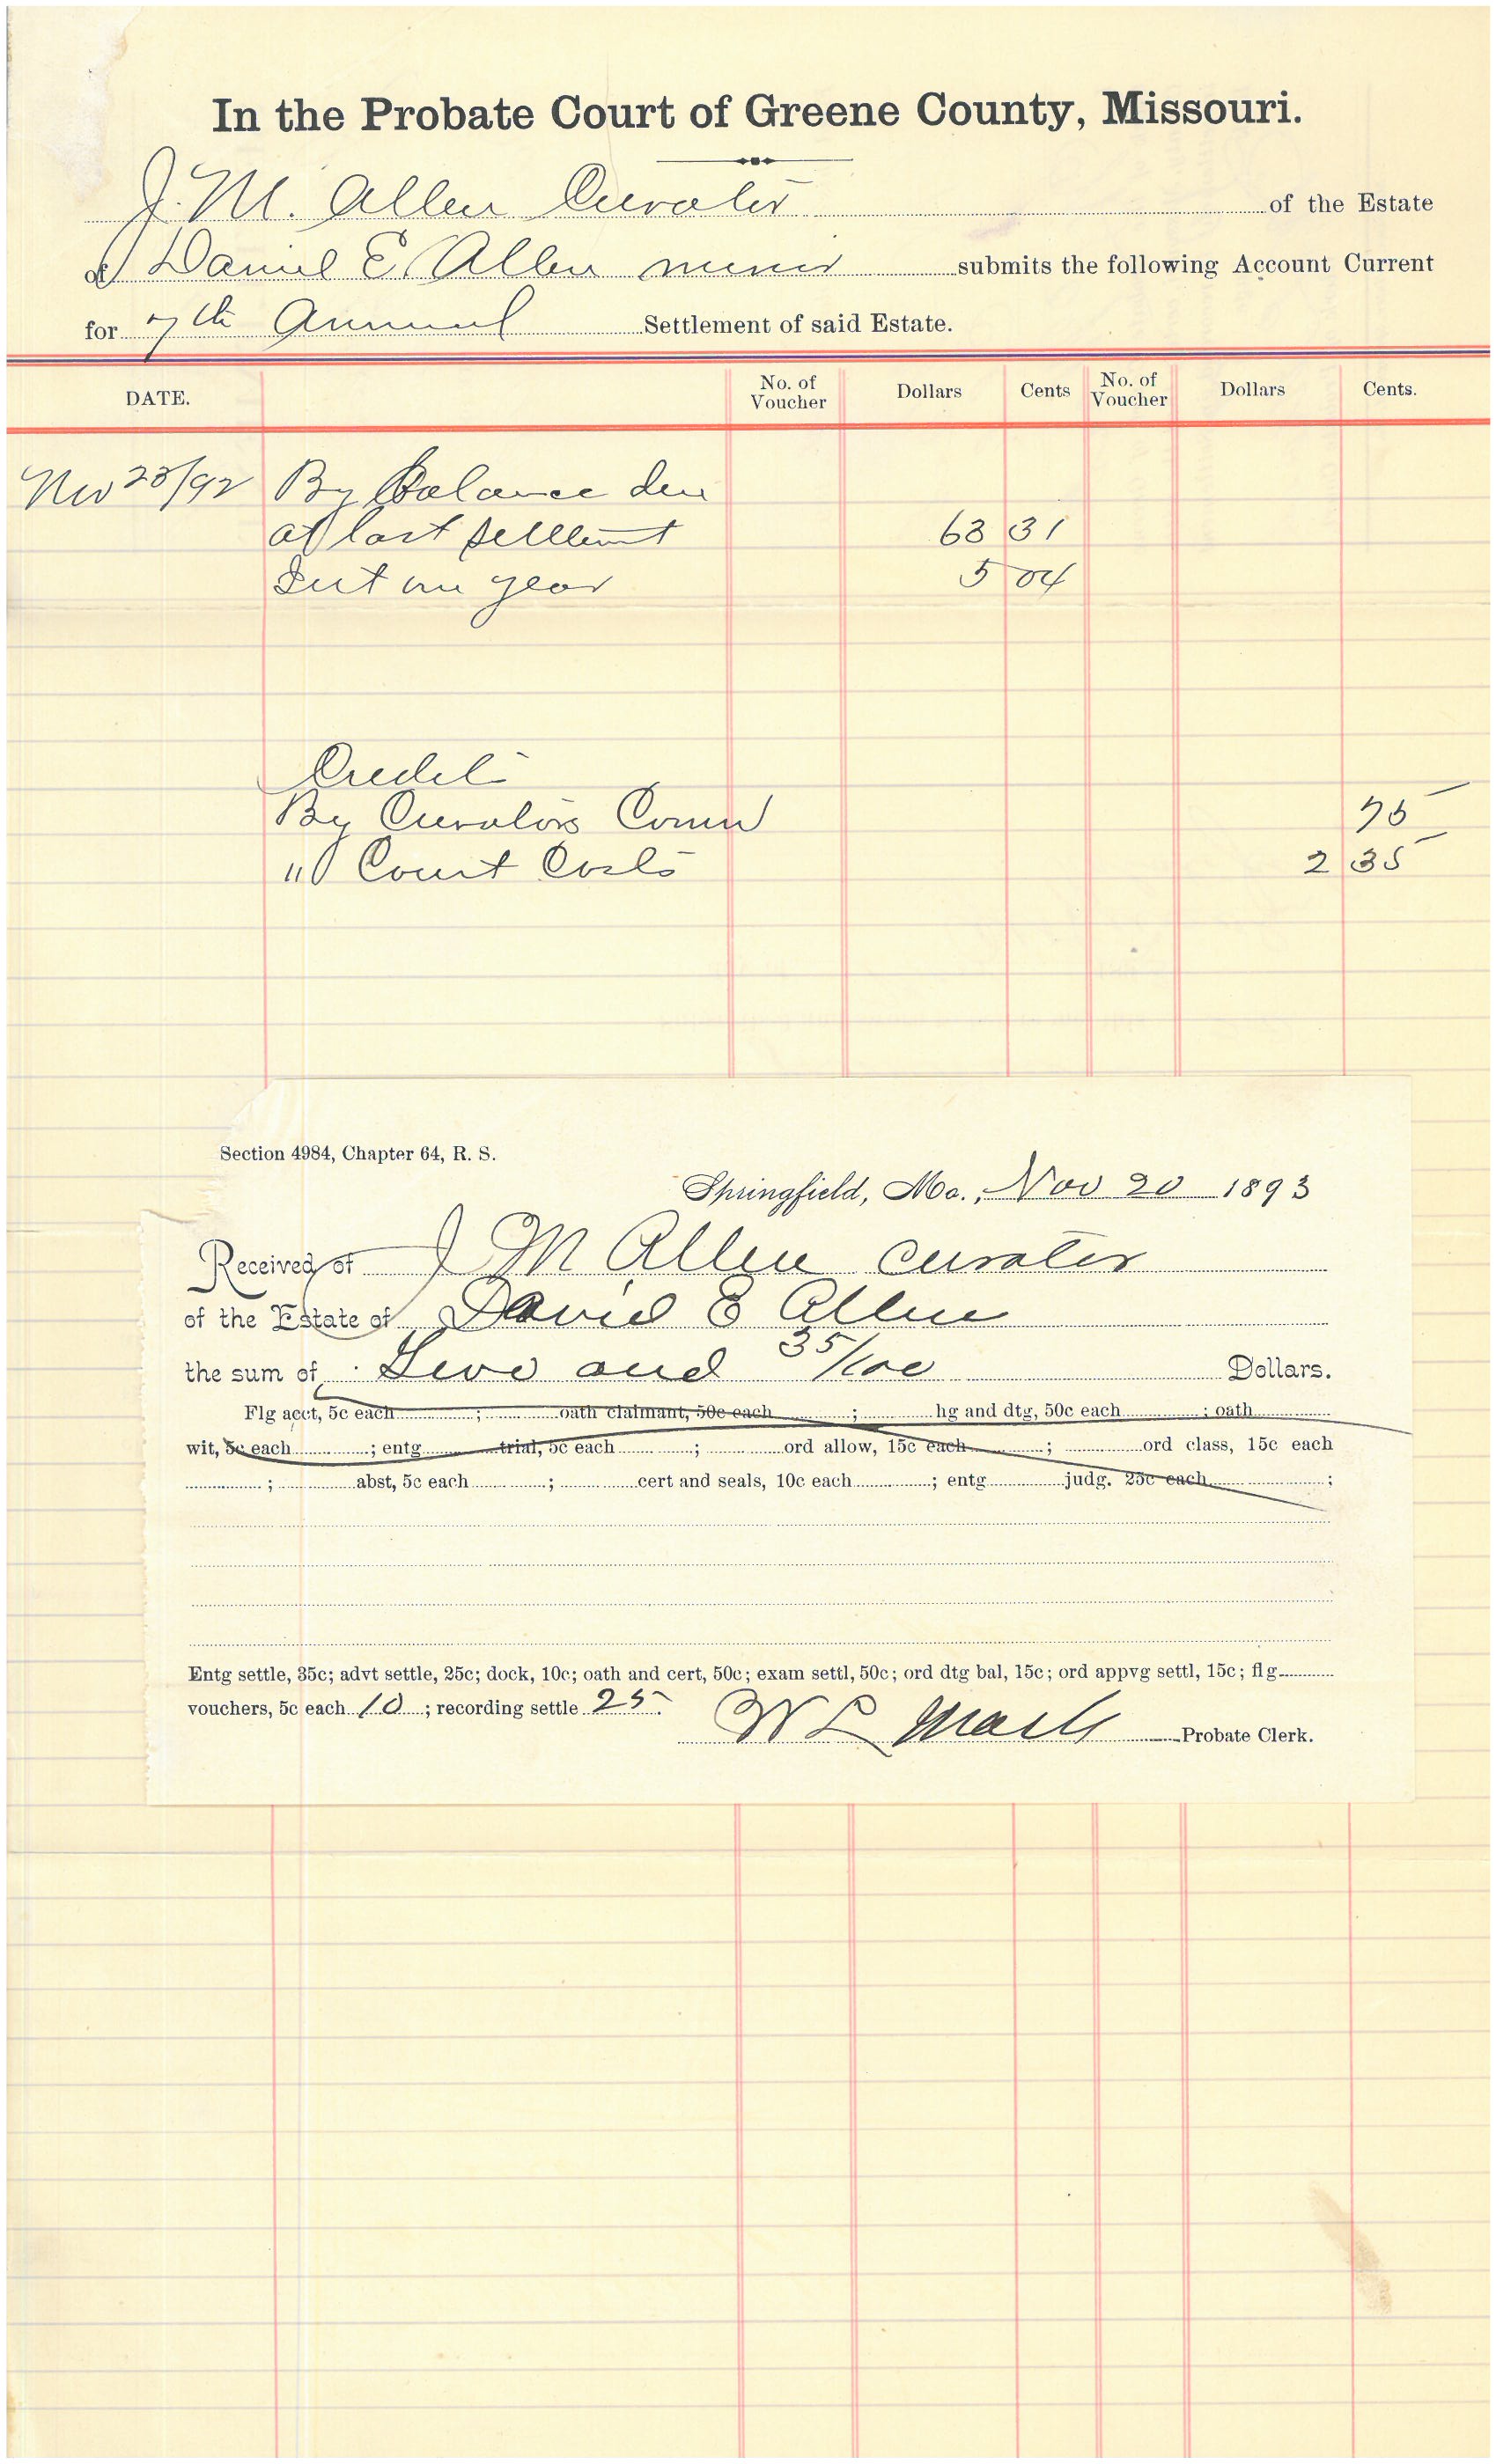 In the Probate Court of Greene County, Missouri.
J. M. Allen Curator of the Estate
of Daniel E. Allen minor submits the following Account Current
for 7th Annual Settlement of said Estate.
DATE. No. of Voucher Dollars Cents No. of Voucher Dollars Cents.
Nov 23/92 By Balance due
at last settlement 63 31
Int one year 5 04
Credit
By Curators Comn 75
" Court Costs 2 35
Section 4984, Chapter 64, R. S.
Springfield, Mo., Nov 20 1893
Received of J M Allen curator
of the Estate of David E Allen
the sum of Two and 35/100 Dollars.
Flg acct, 5c each ; oath claimant, 50c each ; hg and dtg, 50c each ; oath
wit, 5c each ; entg trial, 5c each ; ord allow, 15c each ; ord class, 15c each
; abst, 5c each ; cert and seals, 10c each ; entg judg. 25c each ;
Entg settle, 35c; advt settle, 25c; dock, 10c; oath and cert, 50c; exam settl, 50c; ord dtg bal, 15c; ord appvg settl, 15c; flg
vouchers, 5c each 10 ; recording settle 25.
W L Probate Clerk.